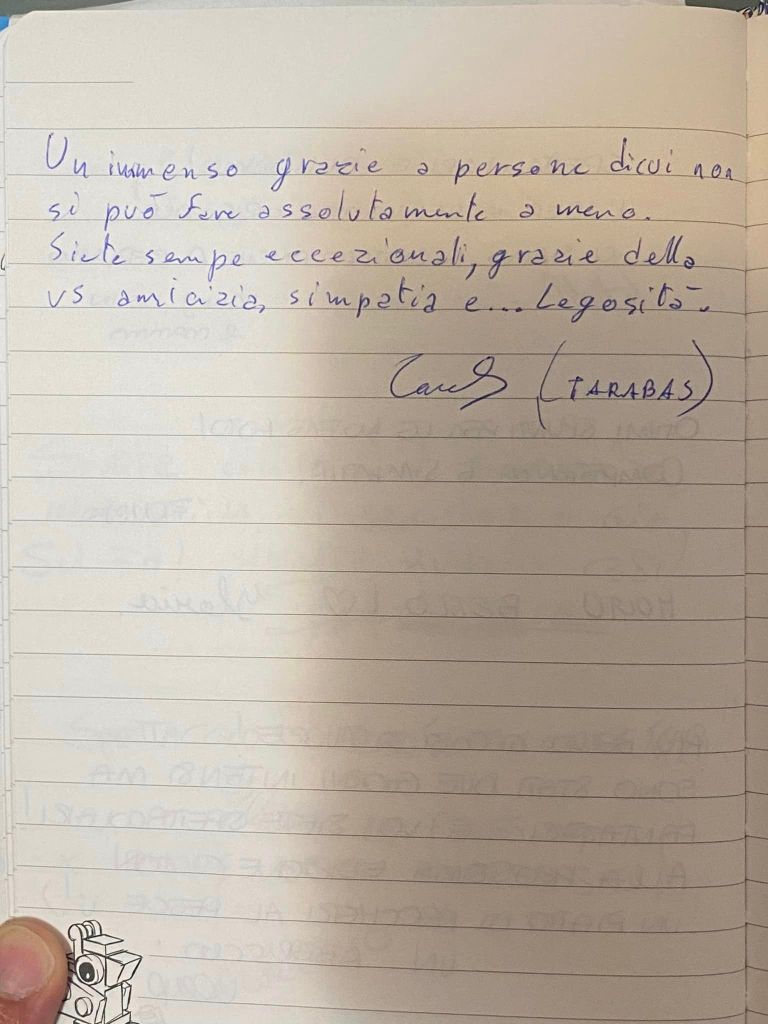 Un immenso grazie a persone di cui non
si può fare assolutamente a meno.
Siete sempe eccezionali, grazie della
vs amicizia, simpatia e... Legosità.
(TARABAS)